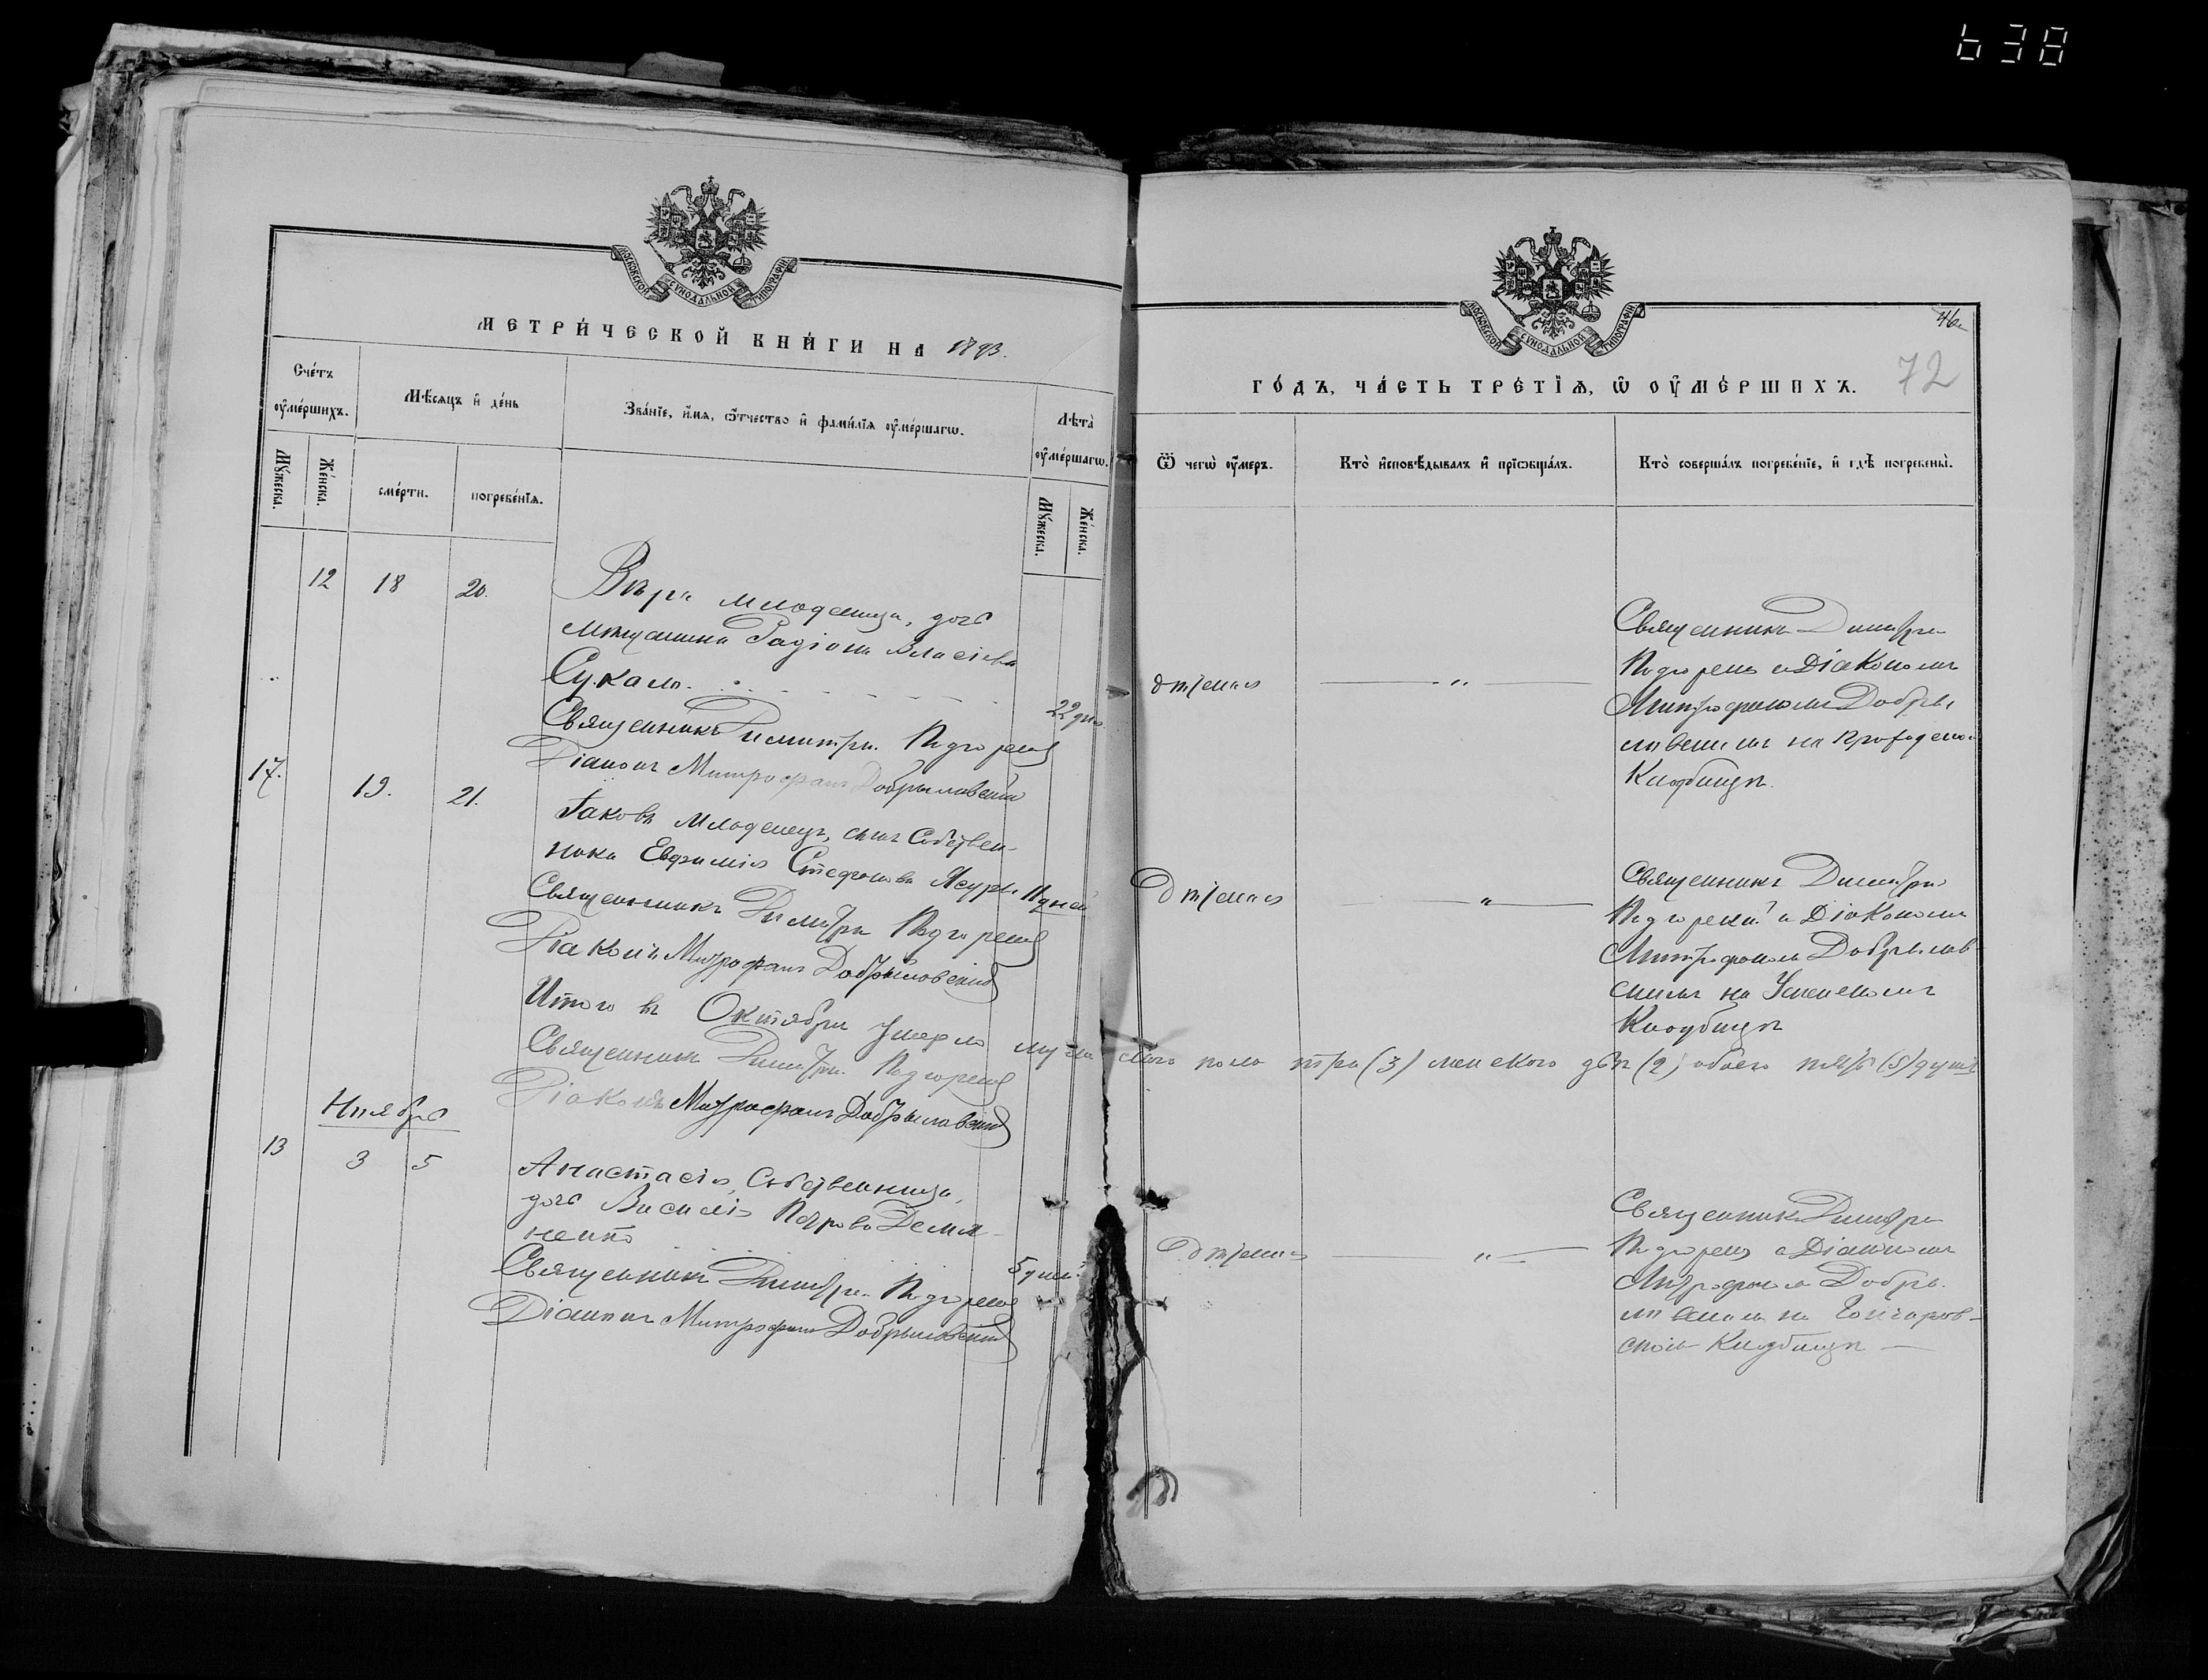 638
МОСКОВСКОЙ СѴНОДАЛЬНОЙ ТИПОГРАФІИ
МЕТРИ́ЧЕСКОЙ КНИ́ГИ НА 1893.
Сче́тъ ᲂу҆ме́ршихъ.
Мѣ́сяцъ и҆ де́нь
Зва́нїе, и҆́мѧ, ѻ҆́тчество и҆ фами́лїѧ ᲂу҆ме́ршагѡ.
Лѣ́та ᲂу҆ме́ршагѡ.
Мꙋ́жеска.
Же́нска.
сме́рти.
погребе́нїѧ.
Мꙋ́жеска.
Же́нска.
12 18 20.
Вѣра младеница, дочь
мѣщанина Радіона Власіева
Сукало.
22 дня
Священникъ Димитрій Подгорскій
Діаконъ Митрофанъ Добрыловскій
17. 19. 21.
Іаковъ младенецъ, сынъ Собствен-
ника Евфимія Стефанова 11 дней
Священникъ Димитрій Подгорскій
Діаконъ Митрофанъ Добрыловскій
Итого въ Октябрѣ умерло мужескаго пола три (3) женскаго двѣ (2) обоего пять (5) душъ
Священникъ Димитрій Подгорскій
Діаконъ Митрофанъ Добрыловскій
Ноябрь
13 3 5
Анастасія, Собственница,
дочь Василія Петрова Демя-
ненко
5 дней
Священникъ Димитрій Подгорскій
Діаконъ Митрофанъ Добрыловскій
МОСКОВСКОЙ СѴНОДАЛЬНОЙ ТИПОГРАФІИ
46
72
ГО́ДЪ, ЧА́СТЬ ТРЕ́ТЇѦ, Ѡ҆ ОУ҆МЕ́РШИХЪ.
Ѿ чегѡ̀ ᲂу҆́меръ.
Кто̀ и҆сповѣ́дывалъ и҆ прїѡбща́лъ.
Кто̀ соверша́лъ погребе́нїе, и҆ гдѣ̀ погребены̀.
Священникъ Димитрій
Подгорскій съ Діакономъ
Митрофаномъ Добры-
ловскимъ на
Кладбищѣ.
Священникъ Димитрій
Подгорскій съ Діакономъ
Митрофаномъ Добрылов-
скимъ на Успенскомъ
Кладбищѣ
Священникъ Димитрій
Подгорскій съ Діакономъ
Митрофаномъ Добры-
ловскимъ на Гончаров-
скомъ Кладбищѣ